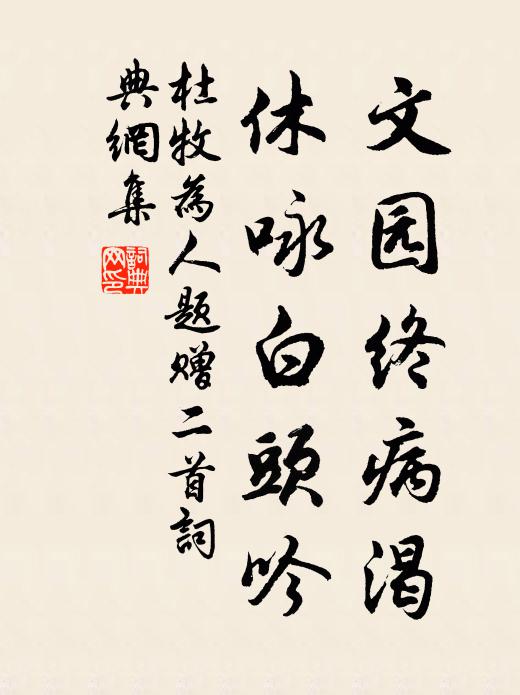 文园终病渴
休咏白頭吟
杜牧為人题赠二首詞
典網集
詞典网印